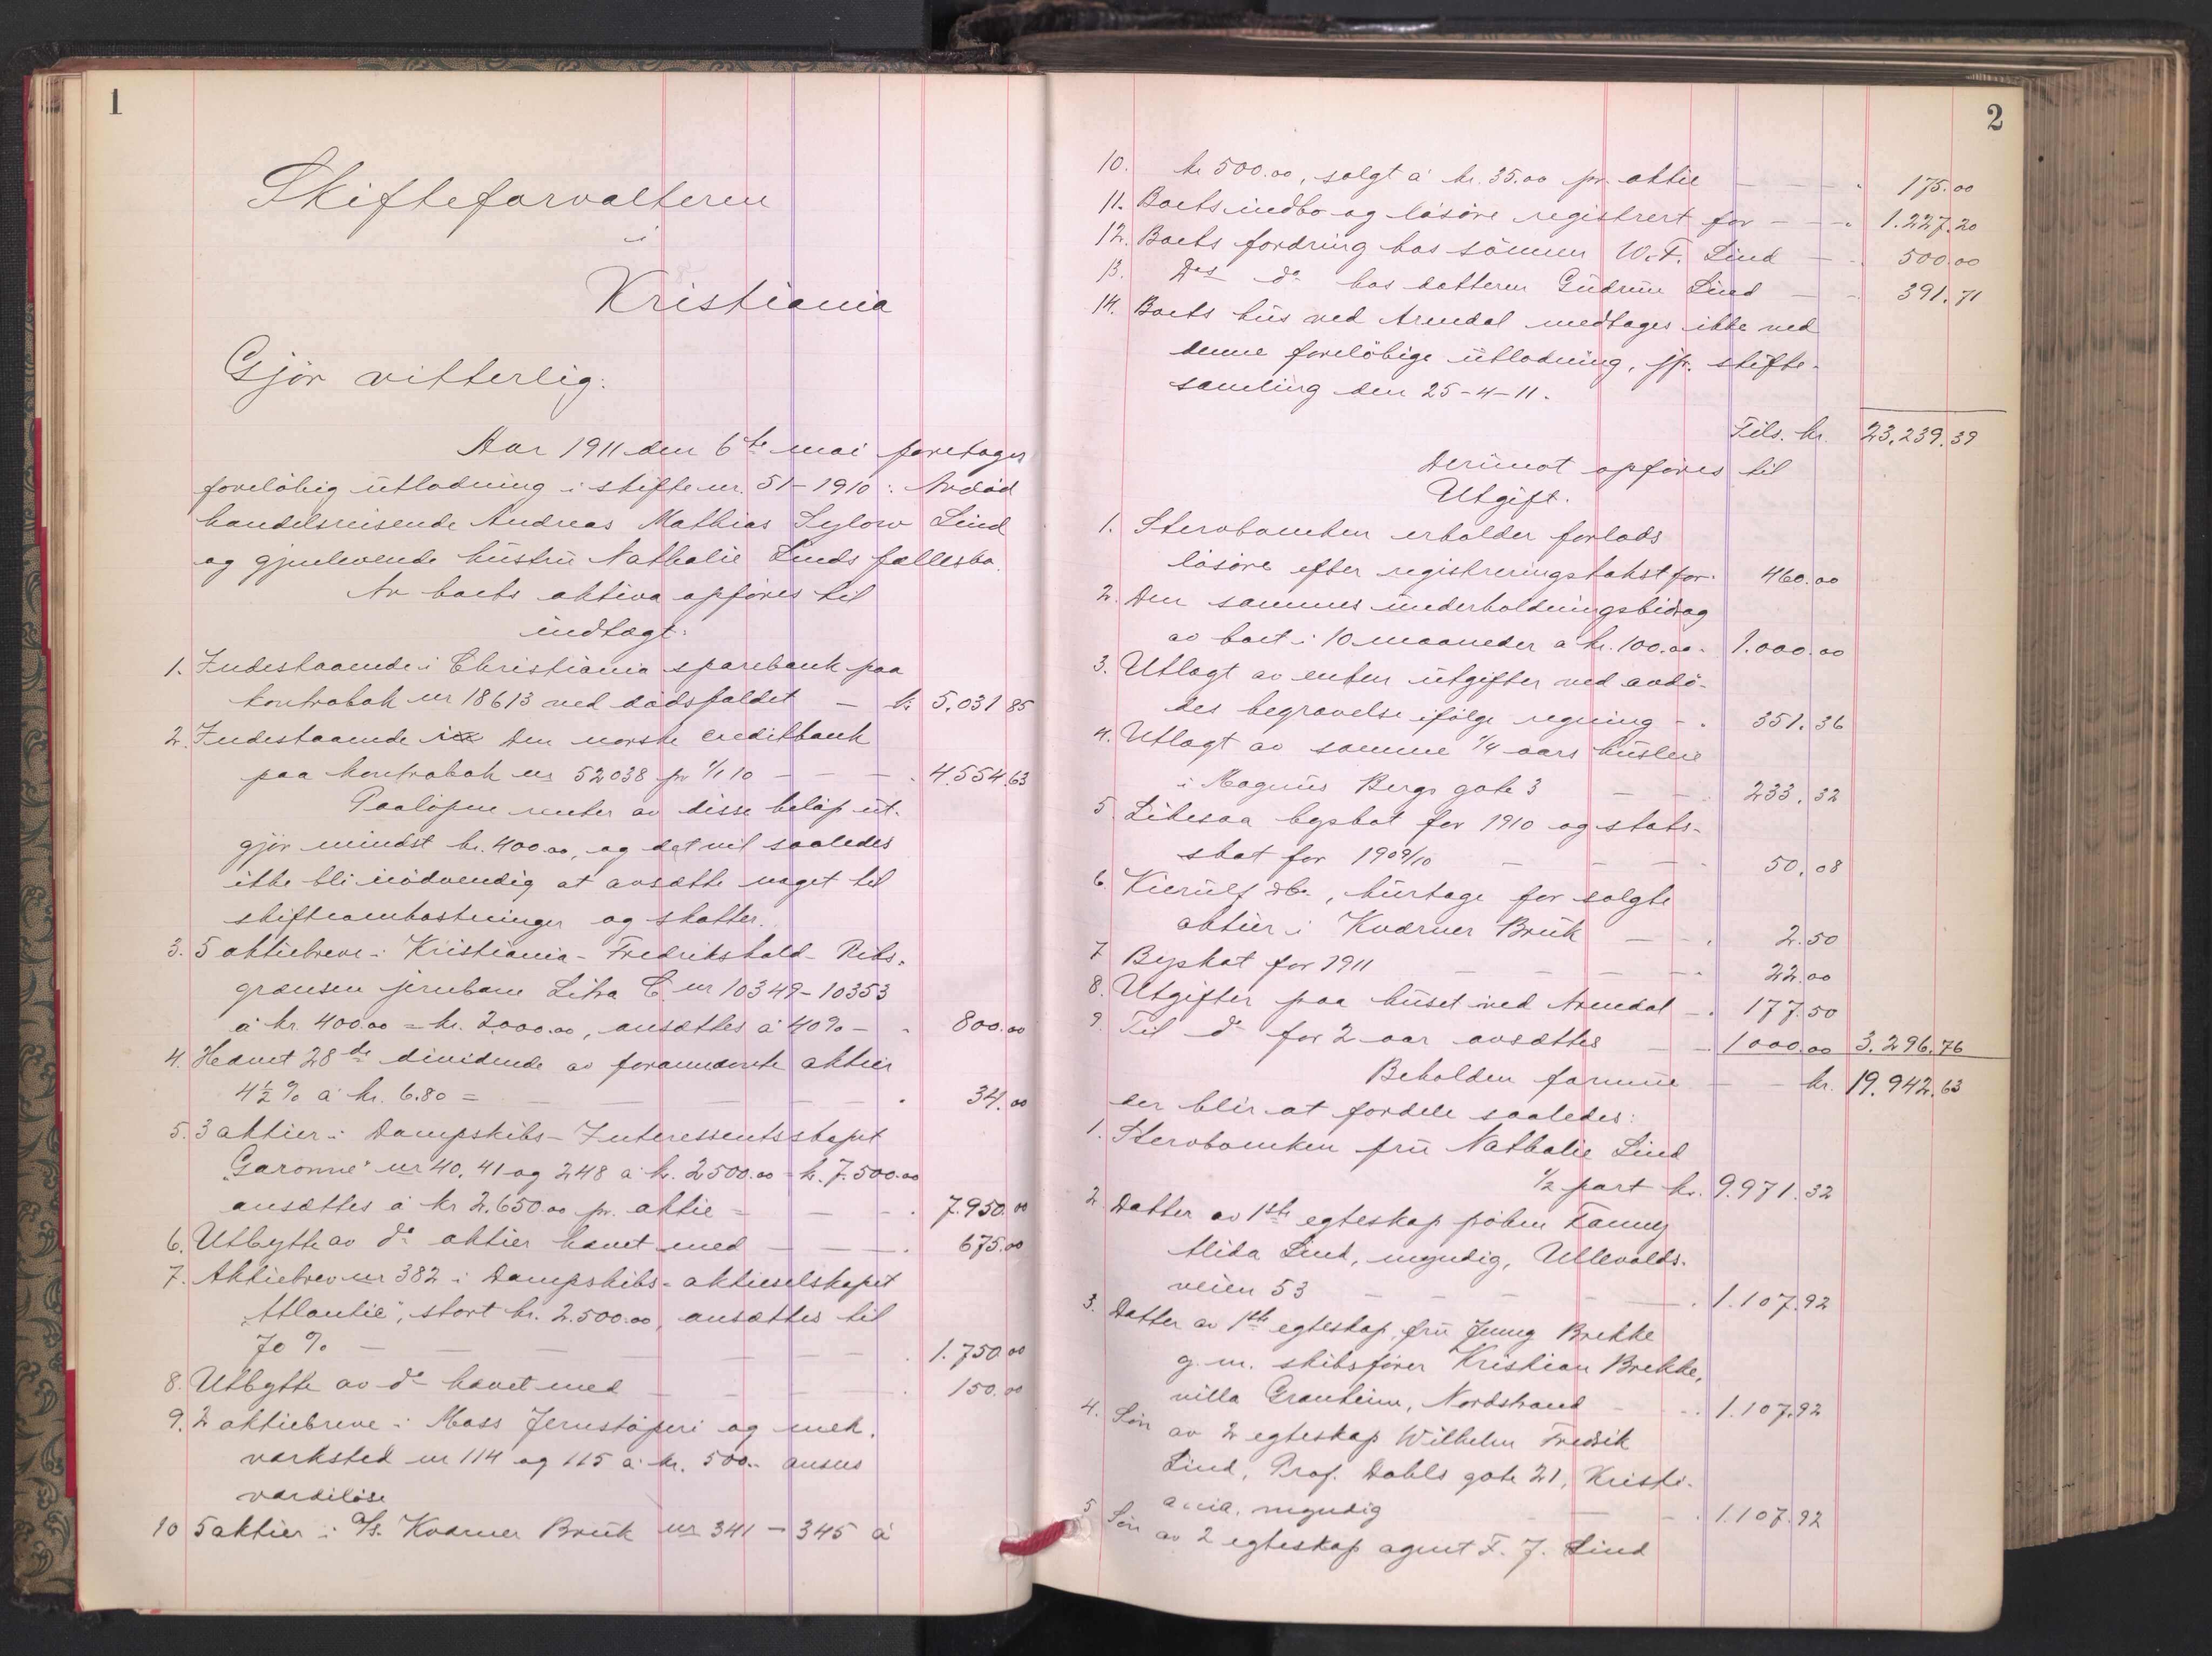 1
Skifteforvalteren
i
Kristiania
Gjör vitterlig:
Aar 1911 den 6te mai foretages
foreløbig utlodning i skifte nr. 51-1910: Avdød
handelsreisende Andreas Mathias Sylow Lind
og gjenlevende hustru Nathalie Linds fællesbo.
Av boets aktiva opføres til
indtægt:
1. Indestaaende i Christiania sparebank paa
kontrabok nr 18613 ved dødsfaldet — kr 5.031 85
2. Indestaaende i Den norske creditbank
paa kontrabok nr 52038 pr 1/1 10 — — — . 4.554.63
Paaløpne renter av disse beløp ut-
gjør mindst kr. 400.00, og det vil saaledes
ikke bli nödvendig at avsætte noget til
skifteomkostninger og skatter.
3. 5 aktiebreve i Kristiania-Fredrikshald-Riks-
grænsen jernbane Litra C. nr 10349-10353
á kr. 400.00 = kr. 2000.00, ansættes á 40% — . 800.00
4. Hævet 28de dividende av forannævnte aktier
4½% á kr. 6.80 = — — — — — . 34.00
5. 3 aktier i Dampskibs-Interessentskapet
"Garonne" nr 40, 41 og 248 á kr. 2500.00 = kr. 7.500.00
ansættes á kr 2.650.00 pr. aktie = — — . 7.950.00
6. Utbytte av do aktier hævet med — — — . 675.00
7. Aktiebrev nr 382 i Dampskibs-aktieselskapet
"Atlantic", stort kr. 2.500.00, ansættes til
70% — — — — — — — . 1.750 00
8. Utbytte av do hævet med — — — . 150.00
9. 2 aktiebreve i Moss Jernstøperi og mek.
verksted nr 114 og 115 á kr. 500.- ansees
værdiløse
10 5 aktier i A/S. Kværner Bruk nr 341 — 345 á
2
10. kr 500.00, solgt á kr. 35.00 pr. aktie — — — . 175.00
11. Boets indbo og løsøre registrert for — — . 1.227.20
12. Boets fordring hos sönnen W. F. Lind — . 500.00
13. Des do hos datteren Gudrun Lind — . 391.71
14. Boets hus ved Arendal medtages ikke ved
denne foreløbige utlodning, jfr. skifte-
samling den 25-4-11.
Tils. kr. 23.239.39
Derimot opføres til
Utgift.
1. Stervboenken erholder forlods
løsøre efter registreringstakst for . 460.00
2. Den sammes underholdningsbidrag
av boet i 10 maaneder a kr. 100.00 . 1.000.00
3. Utlagt av enken utgifter ved avdö-
des begravelse ifølge regning — . 351.36
4. Utlagt av samme 1/4 aars husleie
i Magnus Bergs gate 3 — — . 233.32
5. Likesaa byskat for 1910 og stats-
skat for 1909/10 — — — . 50.08
6. Kierulf & Co., kurtage for solgte
aktier i Kværner Bruk — — . 2.50
7 Byskat for 1911 — — — — . 22.00
8. Utgifter paa huset ved Arendal — . 177.50
9. Til do for 2 aar avsættes — — 1000.00 3.296.76
Beholden formue — — kr. 19.942.63
der blir at fordele saaledes:
1. Stervboenken fru Nathalie Lind
1/2 part kr. 9.971.32
2 Datter av 1ste egteskap frøken Fanny
Alida Lind, myndig, Ullevolds-
veien 53 — — — — . 1.107.92
3. Datter av 1ste egteskap, fru Jenny Brekke
g. m. skibsfører Kristian Brekke,
villa Granheim, Nordstrand — . 1.107.92
4. Søn av 2 egteskap Wilhelm Fredrik
Lind, Prof. Dahls gate 21, Kristi-
ania, myndig — — . 1.107.92
5 Søn av 2 egteskap agent F. J. Lind